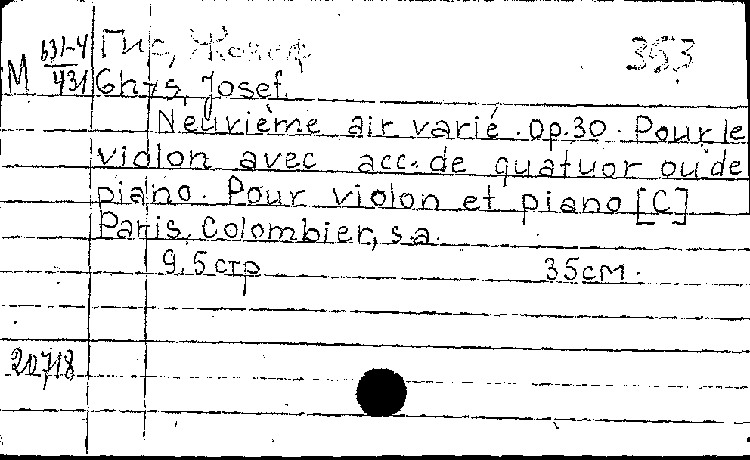 М 631-4 Гис, Жозеф 353
431 Ghys, Josef.
Neuvième air varié. Op.30. Pour le
violon avec acc. de quatuor ou de
piano. Pour violon et piano [C]
Paris, Colombier, s.a.
9,5 стр 35 см.
20718